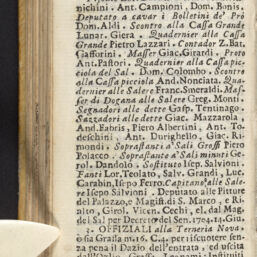 nichini. Ant. Campioni, Dom. Bonis.
Deputato a cavar i Bolletini de' Prò
Dom. Aldi. Scontro alla Cassa Grande
Lunar. Giera. Quadernier alla Cassa
Grande Pietro Lazzari. Contador Z. Bat.
Gafforini. Masser Giac. Girardi. Preto
Ant. Pastori. Quadernier alla Cassa pic-
ciola del Sal. Dom. Colombo. Scontro
alla Cassa picciola And. Nonciata. Qua-
dernier alle Salere Franc. Smeraldi. Mas-
ser di Dogana alle Salere Greg. Monti.
Segnadori alle dette Gasp. Tentinago.
Sazzadori alle dette Giac. Mazzarola,
And. Fabris, Pietro Albertini, Ant. To-
deschini, Ant. Durighello, Giac. Ri-
mondi. Soprastanti a' Sali Grossi Piero
Polacco. Soprastante a' Sali minuti Ge-
rol. Dandolo. Sostituto Isep. Salvioni.
Fanti Lor. Teolato, Salv. Grandi, Luc.
Carabin, Isepo Ferro. Capitano alle Sale-
re Isepo Salvioni. Deputato alle Pitture
del Palazzo, e Magist. di S. Marco, e Ri-
alto, Girol. Vicen. Cechi, el. dal Mag.
del Sal per Decreto del Sen. 1724. 14. Giu.
3. OFFICIALI alla Ternaria Nova,
o sia Grassa m. 16. C. 4. per riscuotere sen-
za pena il Dazio dell'entrata, ed uscita